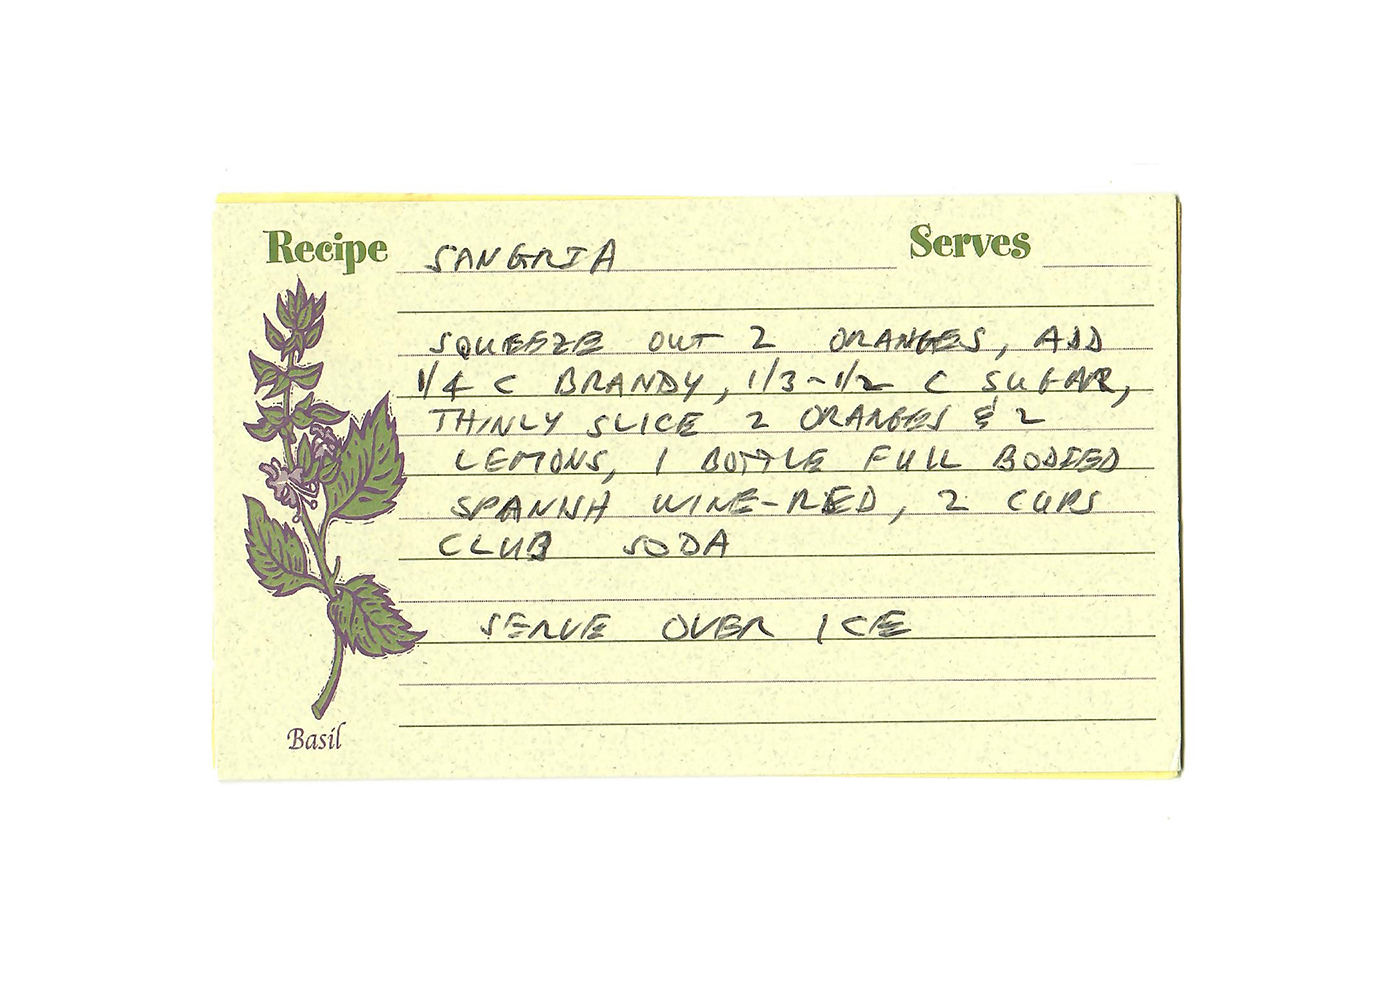 Recipe SANGRIA Serves
SQUEEZE OUT 2 ORANGES, ADD
1/4 C BRANDY, 1/3-1/2 C SUGAR,
THINLY SLICE 2 ORANGES & 2
LEMONS, 1 BOTTLE FULL BODIED
SPANISH WINE-RED, 2 CUPS
CLUB SODA
SERVE OVER ICE
Basil